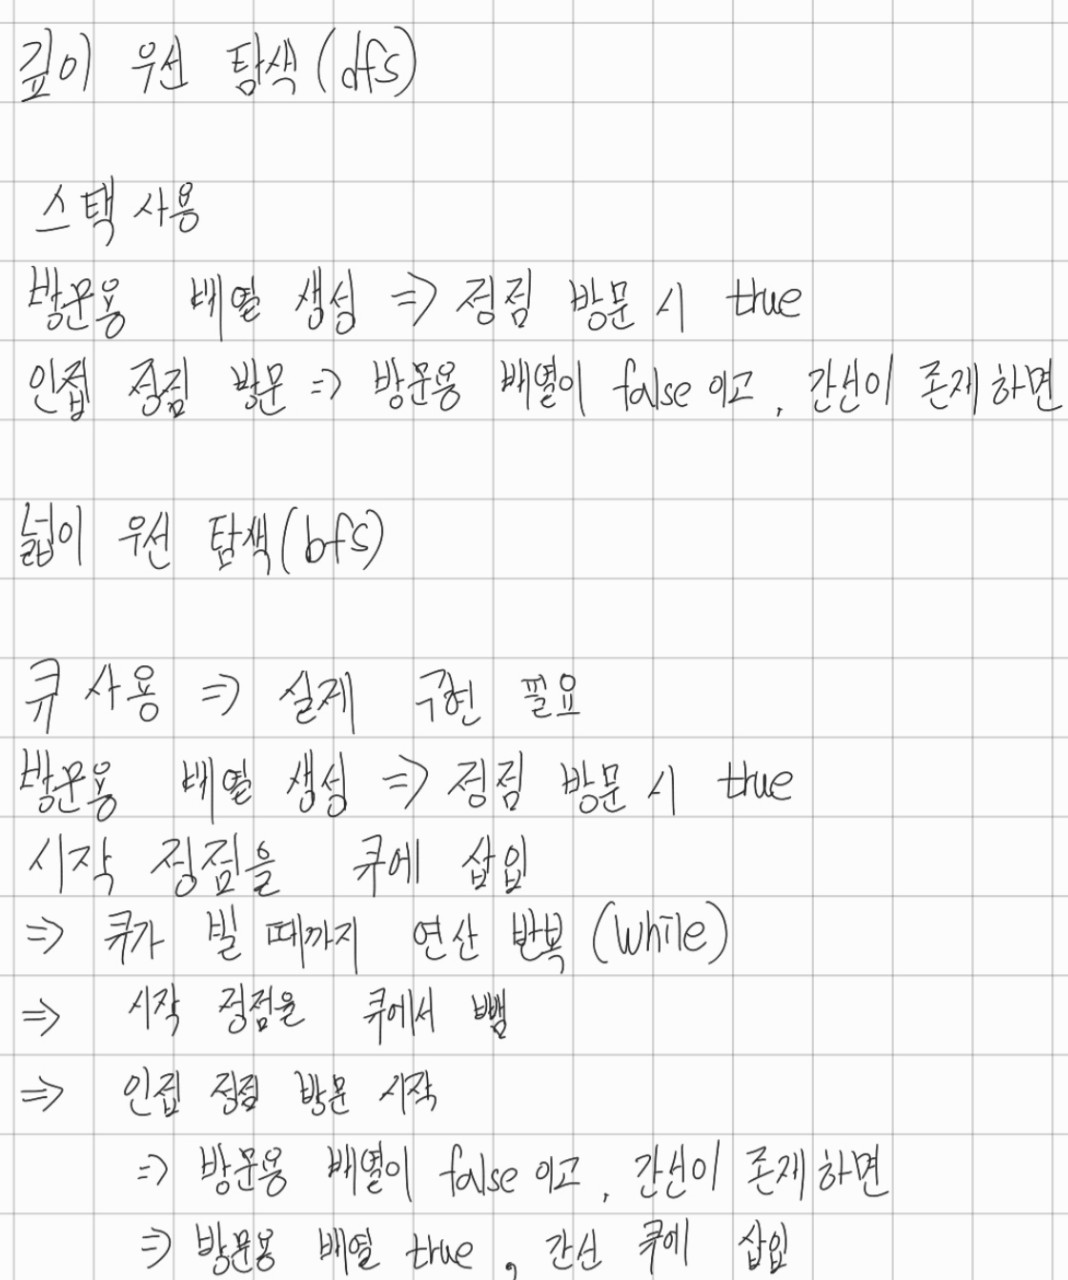 깊이 우선 탐색(dfs)
스택 사용
방문용 배열 생성 => 정점 방문 시 true
인접 정점 방문 => 방문용 배열이 false 이고, 간선이 존재하면
넓이 우선 탐색(bfs)
큐 사용 => 실제 구현 필요
방문용 배열 생성 => 정점 방문 시 true
시작 정점을 큐에 삽입
=> 큐가 빌 때까지 연산 반복 (while)
=> 시작 정점을 큐에서 뺌
=> 인접 정점 방문 시작
=> 방문용 배열이 false 이고, 간선이 존재하면
=> 방문용 배열 true, 간선 큐에 삽입